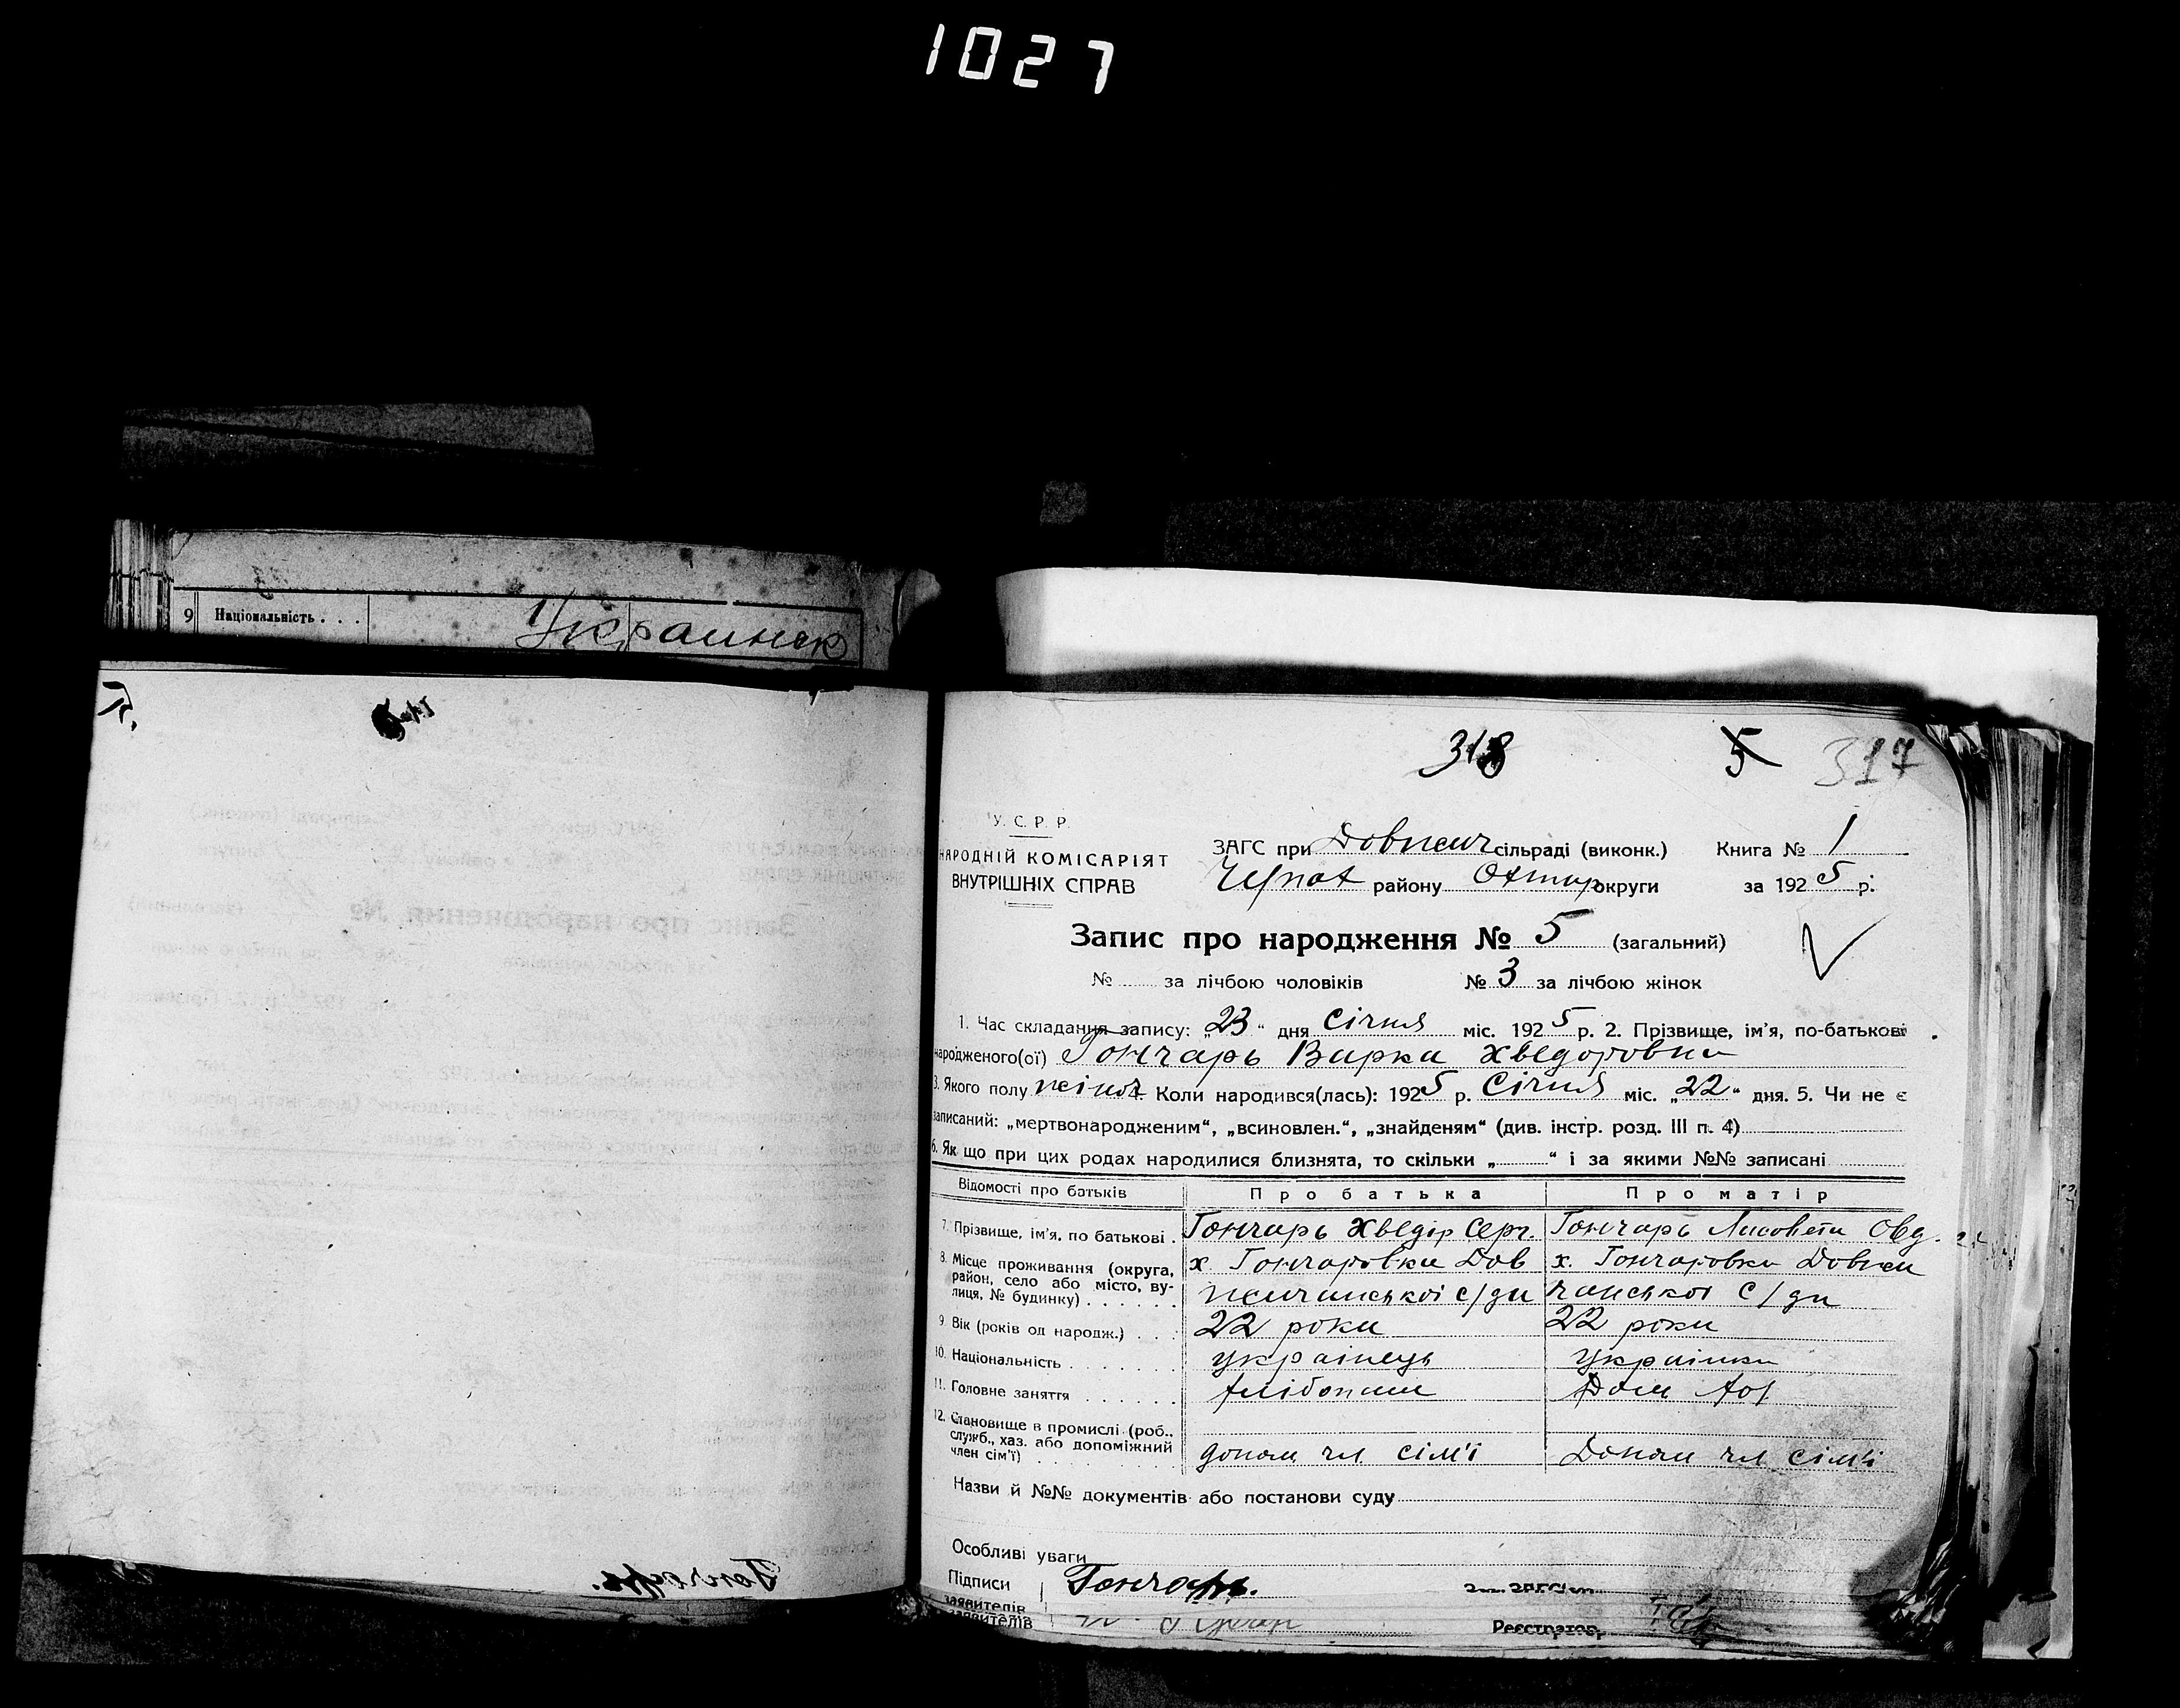 1027
9 Національність . . .
Украинск
318 5 317
У. С. Р. Р.
НАРОДНІЙ КОМІСАРІЯТ
ВНУТРІШНІХ СПРАВ
ЗАГС при Довжич сільраді (виконк.) Книга № 1
Чупах району Охтир округи за 1925 р.
Запис про народження № 5 (загальний)
№ за лічбою чоловіків № 3 за лічбою жінок
1. Час складання запису: „23“ дня Січня міс. 1925 р. 2. Прізвище, ім'я, по-батькові
народженого(ої) Гончарь Варка Хведоровна
3. Якого полу жіноч 4. Коли народився(лась): 1925 р. Січня міс. „22“ дня. 5. Чи не є
записаний: „мертвонародженим“, „всиновлен.“, „знайденям“ (див. інстр. розд. III п. 4)
6. Як що при цих родах народилися близнята, то скільки „ “ і за якими №№ записані
Відомості про батьків Про батька Про матір
7. Прізвище, ім'я, по батькові . Гончарь Хведір Серг. Гончарь Лисовета Овд.
8. Місце проживання (округа, район, село або місто, вулиця, № будинку) . . . . . .
х. Гончаровка Дов
жичанської с/ди
х. Гончаровка Довжи
чанської с/ди
9. Вік (років од народж.) . . . 22 роки 22 роки
10. Національність . . . . . . . українець українка
11. Головне заняття . . . . . . хлібопаш Дом хоз
12. Становище в промислі (роб., служб., хаз. або допоміжний член сім'ї) . . . . . . .
допом чл сім'ї Допом чл сім'ї
Назви й №№ документів або постанови суду
Особливі уваги
Підписи
заявителів
Гончарь.
Зав. ЗАГС'ом
заявителів
Реєстратор